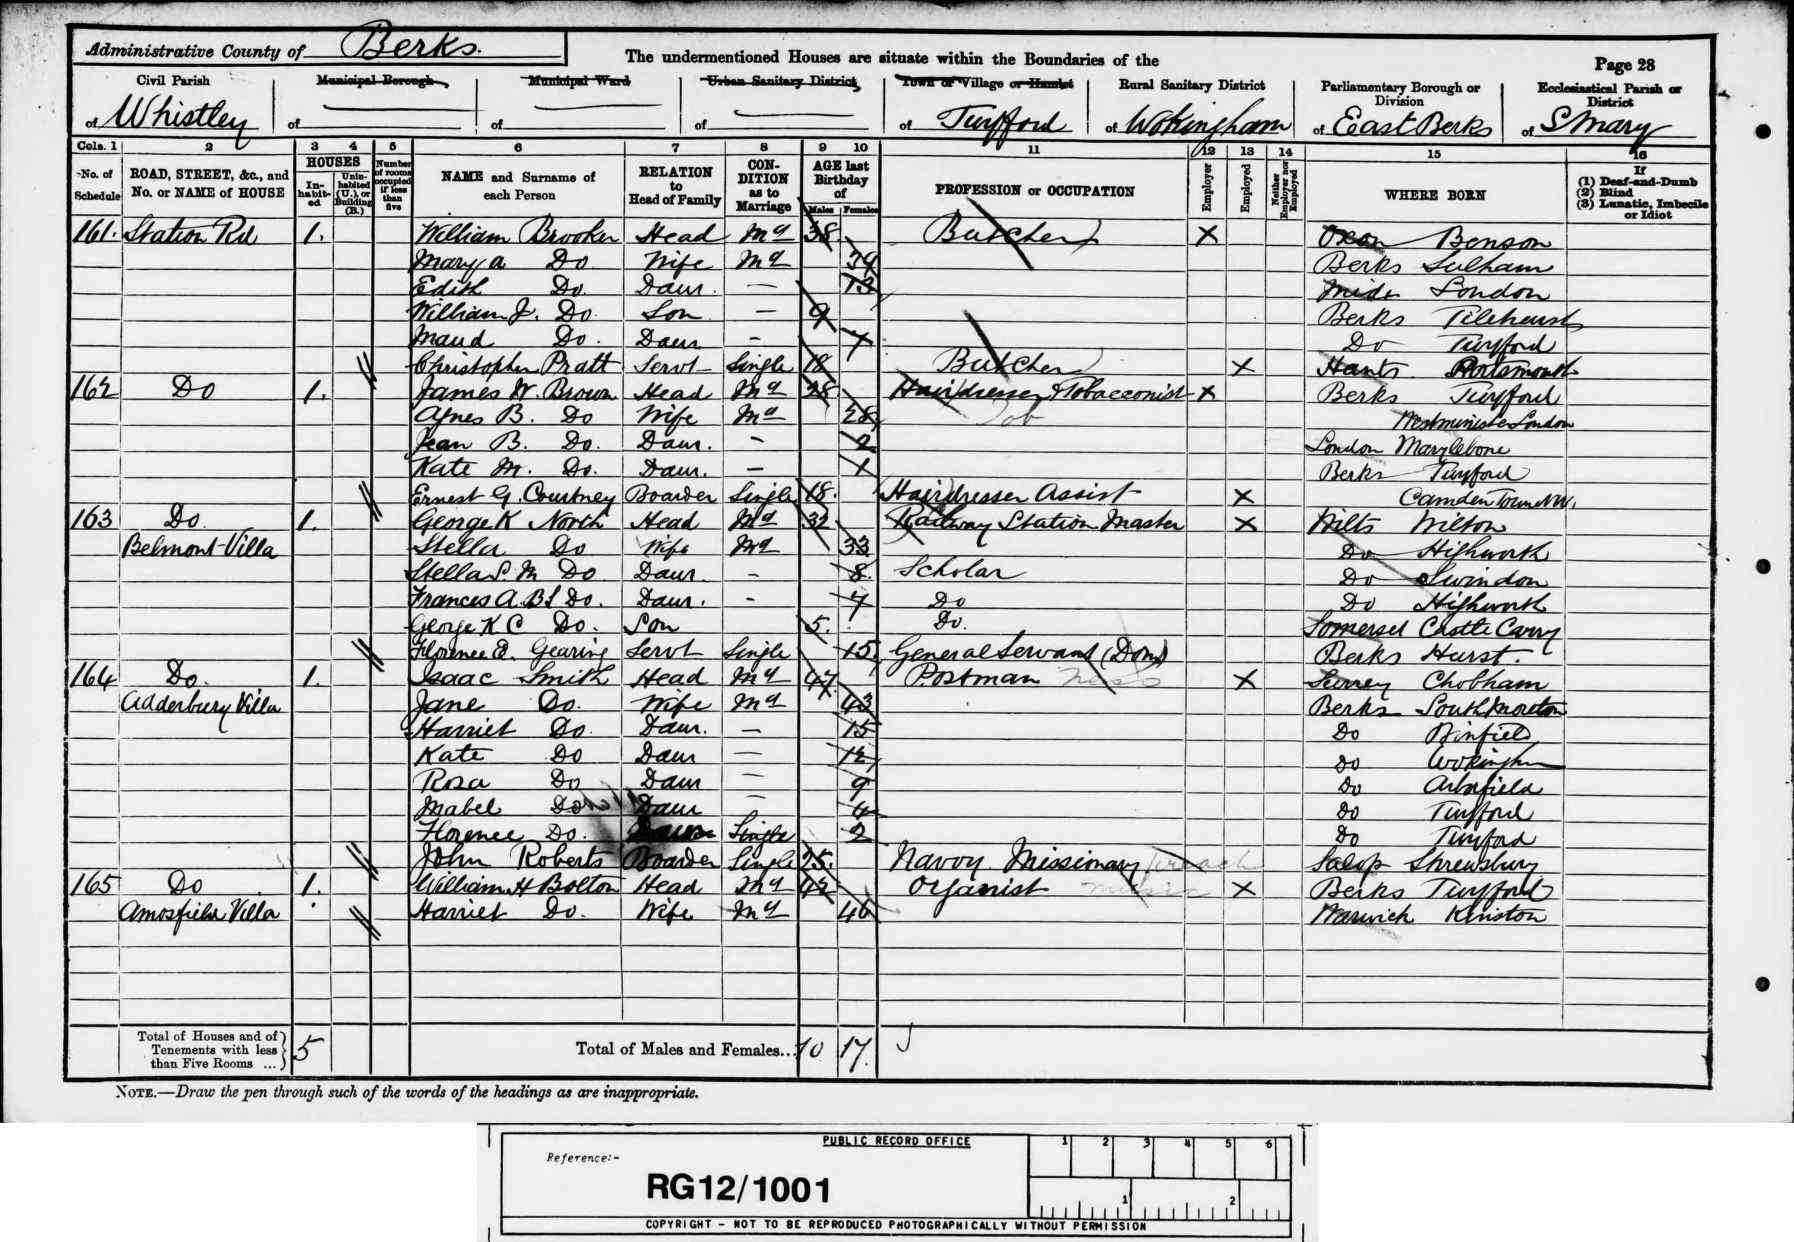 Administrative County of Berks.
The undermentioned Houses are situate within the Boundaries of the
Page 28
Civil Parish of Whistley
Municipal Borough of
Municipal Ward of
Urban Sanitary District of
Town or Village or Hamlet of Twyford
Rural Sanitary District of Wokingham
Parliamentary Borough or Division of East Berks
Ecclesiastical Parish or District of S Mary
Cols. 1 2 3 4 5 6 7 8 9 10 11 12 13 14 15 16
No. of Schedule
ROAD, STREET, &c., and No. or NAME of HOUSE
HOUSES
Inhabited
Uninhabited (U.), or Building (B.)
Number of rooms occupied if less than five
NAME and Surname of each Person
RELATION to Head of Family
CONDITION as to Marriage
AGE last Birthday of
Males Females
PROFESSION or OCCUPATION
Employer
Employed
Neither Employer nor Employed
WHERE BORN
If (1) Deaf-and-Dumb (2) Blind (3) Lunatic, Imbecile or Idiot
161. Station Rd 1. William Brooker Head Md 38 Butcher X Oxon Benson
Mary A Do Wife Md 34 Berks Sulham
Edith Do. Daur. — 13 Midx London
William J. Do. Son — 9 Berks Tilehurst
Maud Do. Daur. — 7 Do Twyford
Christopher Pratt Servt Single 18 Butcher X Hants Portsmouth
162 Do 1. James W. Brown Head Md 28 Hairdresser & Tobacconist X Berks Twyford
Agnes B. Do Wife Md 28 Tob Westminster London
Jean B. Do. Daur. — 2 London Marylebone
Kate M. Do. Daur. — 1 Berks Twyford
Ernest G. Courtney Boarder Single 18. Hairdresser Assist X Camden Town NW.
163 Do. 1. George K North Head Md 32 Railway Station Master X Wilts Wilton
Belmont Villa Stella Do Wife Md 33 Do Highworth
Stella S. M Do. Daur. — 8. Scholar Do Swindon
Frances A. B S Do. Daur. — 7 Do Do Highworth
George K C Do. Son 5. Do. Somerset Castle Cary
Florence E. Gearing Servt Single 15 General Servant (Dom) Berks Hurst.
164 Do. 1. Isaac Smith Head Md 47 Postman X Surrey Chobham
Adderbury Villa Jane Do. Wife Md 43 Berks South Moreton
Harriet Do. Daur. — 15 Do Binfield
Kate Do Daur — 12 Do Wokingham
Rosa Do Daur — 9 Do Arborfield
Mabel Do Daur — 4 Do Twyford
Florence Do. Single 2 Do Twyford
John Roberts Boarder Single 25. Navvy Missionary preach Salop Shrewsbury
165 Do 1. William H Bolton Head Md 42 Organist Music X Berks Twyford
Amosfield Villa Harriet Do. Wife Md 40 Warwick Kinston
Total of Houses and of Tenements with less than Five Rooms ... 5
Total of Males and Females... 10 17
NOTE.—Draw the pen through such of the words of the headings as are inappropriate.
PUBLIC RECORD OFFICE
1 2 3 4 5 6
Reference:-
RG12/1001
1 2
COPYRIGHT - NOT TO BE REPRODUCED PHOTOGRAPHICALLY WITHOUT PERMISSION